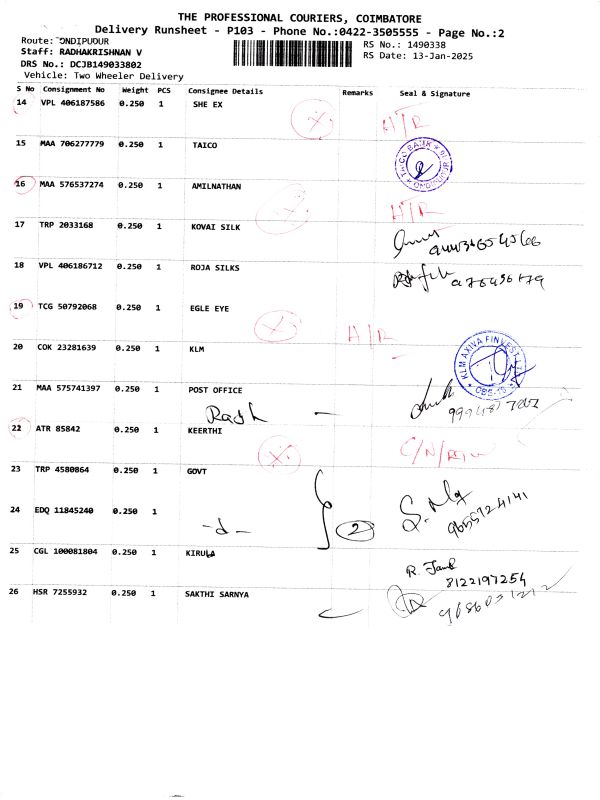 THE PROFESSIONAL COURIERS, COIMBATORE
Delivery Runsheet - P103 - Phone No.:0422-3505555 - Page No.:2
Route: ONDIPUDUR
RS No.: 1490338
Staff: RADHAKRISHNAN V
RS Date: 13-Jan-2025
DRS No.: DCJB149033802
Vehicle: Two Wheeler Delivery
S No Consignment No Weight PCS Consignee Details Remarks Seal & Signature
14 VPL 406187586 0.250 1 SHE EX
A/R
15 MAA 706277779 0.250 1 TAICO
TAICO BANK
16 MAA 576537274 0.250 1 AMILNATHAN
A/R
17 TRP 2033168 0.250 1 KOVAI SILK
18 VPL 406186712 0.250 1 ROJA SILKS
19 TCG 50792068 0.250 1 EGLE EYE
A/R
20 COK 23281639 0.250 1 KLM
KLM AXIVA FINVEST
21 MAA 575741397 0.250 1 POST OFFICE
22 ATR 85842 0.250 1 KEERTHI
23 TRP 4580864 0.250 1 GOVT
24 EDQ 11845240 0.250 1
-d- 2
9655724141
25 CGL 100081804 0.250 1 KIRULA
8122197254
26 HSR 7255932 0.250 1 SAKTHI SARNYA